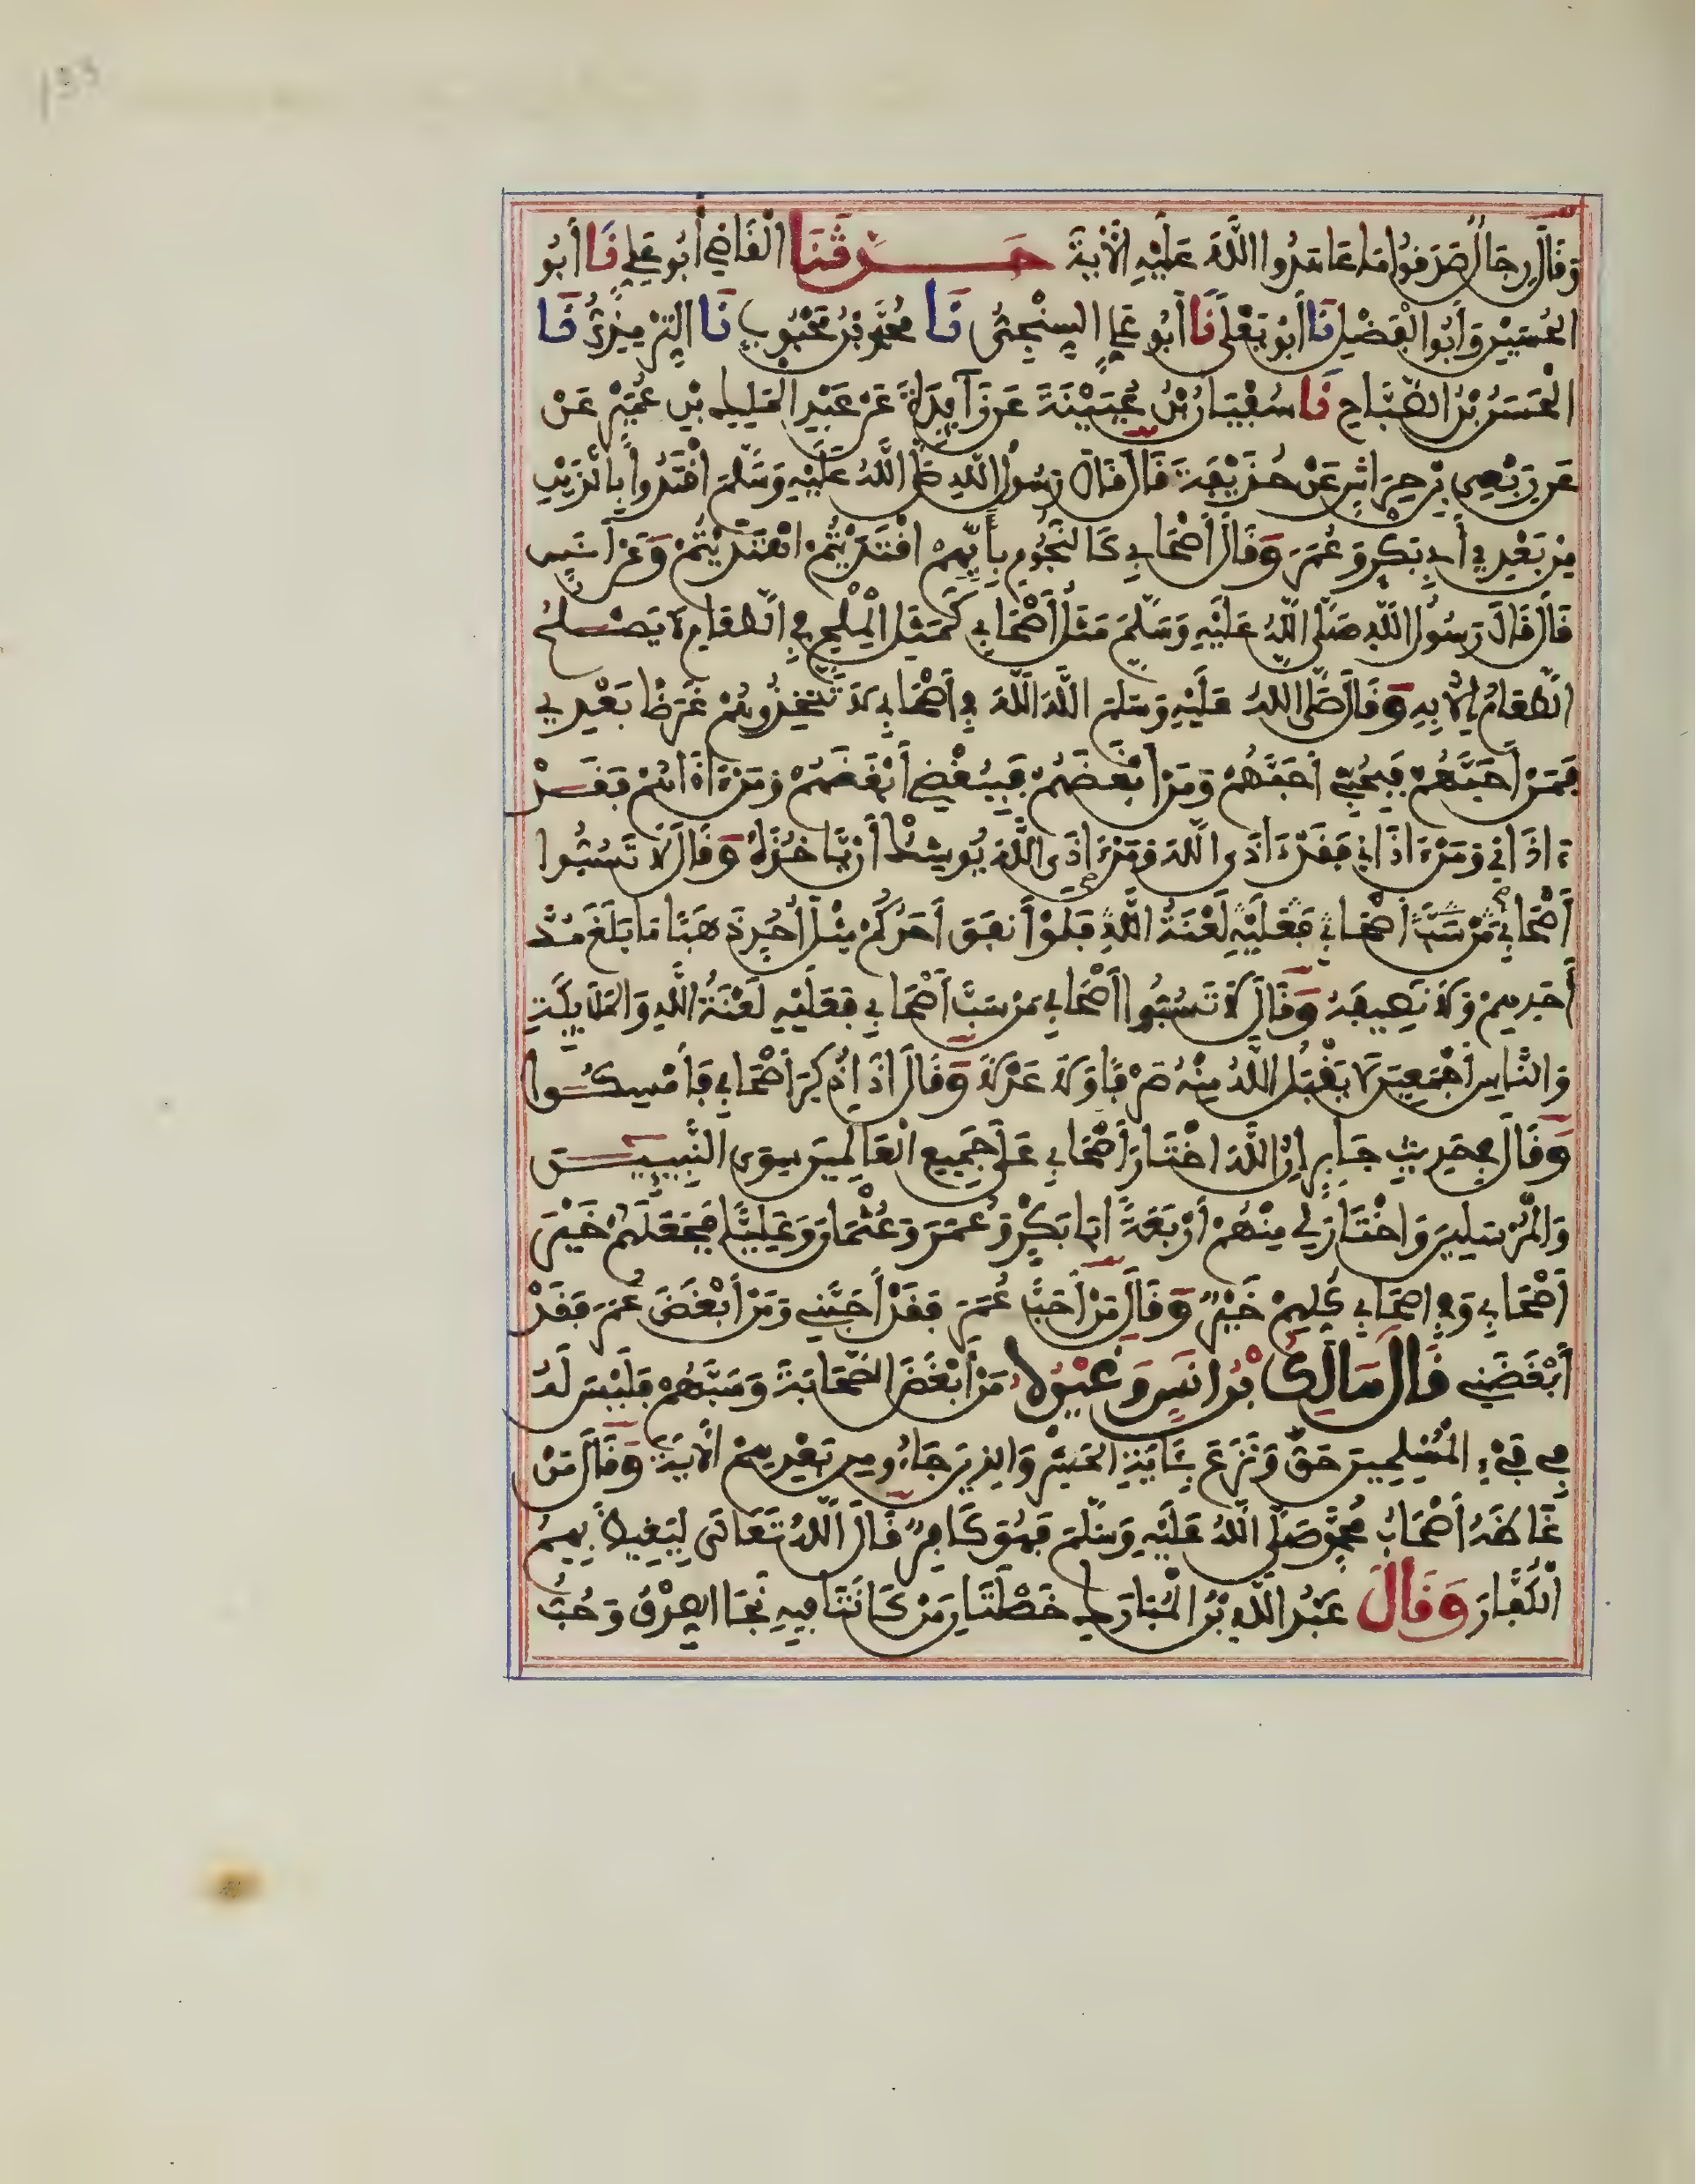 133
وَقَالَ رِجَالٌ صَدَقُوا مَا عَاهَدُوا اللَّهَ عَلَيْهِ الْآيَةَ حَدَّثَنَا الْقَاضِي أَبُو عَلِيٍّ نَا أَبُو
الْحُسَيْنِ وَأَبُوا الْفَضْلِ نَا أَبُو يَعْلَى نَا أَبُو عَلِيٍّ السِّنْجِيُّ نَا مُحَمَّدُ بْنُ مَحْبُوبٍ نَا التِّرْمِذِيُّ نَا
الْحَسَنُ بْنُ الصَّبَّاحِ نَا سُفْيَانُ بْنُ عُيَيْنَةَ عَنْ زَائِدَةَ عَنْ عَبْدِ الْمَلِكِ بْنِ عُمَيْرٍ عَنْ
عَنْ رِبْعِيِ بْنِ حِرَاشٍ عَنْ حُذَيْفَةَ قَالَ قَالَ رَسُولُ اللَّهِ صَلَّى اللَّهُ عَلَيْهِ وَسَلَّمَ اقْتَدُوا بِالَّذَيْنِ
مِنْ بَعْدِي أَبِي بَكْرٍ وَعُمَرَ وَقَالَ أَصْحَابِي كَالنُّجُومِ بِأَيِّهِمْ اقْتَدَيْتُمْ اهْتَدَيْتُمْ وَعَنْ أَنَسٍ
قَالَ قَالَ رَسُولُ اللَّهِ صَلَّى اللَّهُ عَلَيْهِ وَسَلَّمَ مَثَلُ أَصْحَابِي كَمَثَلِ الْمِلْحِ فِي الطَّعَامِ لَا يَصْلُحُ
الطَّعَامُ إِلَّا بِهِ وَقَالَ صَلَّى اللَّهُ عَلَيْهِ وَسَلَّمَ اللَّهَ اللَّهَ فِي أَصْحَابِي لَا تَتَّخِذُوهُمْ غَرَضًا بَعْدِي
فَمَنْ أَحَبَّهُمْ فَبِحُبِّي أَحَبَّهُمْ وَمَنْ أَبْغَضَهُمْ فَبِبُغْضِي أَبْغَضَهُمْ وَمَنْ ءَاذَاهُمْ فَقَدْ
ءَاذَانِي وَمَنْ ءَاذَانِي فَقَدْ ءَاذَى اللَّهَ وَمَنْ ءَاذَى اللَّهَ يُوشِكُ أَنْ يَّاخُذَهُ وَقَالَ لَا تَسُبُّوا
أَصْحَابِي مَنْ سَبَّ أَصْحَابِي فَعَلَيْهِ لَعْنَةُ اللَّهِ فَلَوْ أَنفَقَ أَحَدُكُمْ مِثْلَ أُحُدٍ ذَهَبًا مَا بَلَغَ مُدَّ
أَحَدِهِمْ وَلَا نَصِيفَهُ وَقَالَ لَا تَسُبُّوا أَصْحَابِي مَنْ سَبَّ أَصْحَابِي فَعَلَيْهِ لَعْنَةُ اللَّهِ وَالْمَلَائِكَةِ
وَالنَّاسِ أَجْمَعِينَ لَا يَقْبَلُ اللَّهُ مِنْهُ صَرْفًا وَلَا عَدْلًا وَقَالَ اذَا ذُكِرَ أَصْحَابِي فَأَمْسِكُوا
وَقَالَ فِي حَدِيثِ جَابِرٍ إِنَّ اللَّهَ اخْتَارَ أَصْحَابِي عَلَى جَمِيعِ الْعَالَمِينَ سِوَى النَّبِيِّينَ
وَالْمُرْسَلِينَ وَاخْتَارَ لِي مِنْهُمْ أَرْبَعَةً أَبَا بَكْرٍ وَعُمَرَ وَعُثْمَانَ وَعَلِيًّا فَجَعَلَهُمْ خَيْرَ
أَصْحَابِي وَفِي أَصْحَابِي كُلِّهِمْ خَيْرٌ وَقَالَ مَنْ أَحَبَّ عُمَرَ فَقَدْ أَحَبَّنِي وَمَنْ أَبْغَضَ عُمَرَ فَقَدْ
أَبْغَضَنِي قَالَ مَالِكُ بْنُ أَنَسٍ وَغَيْرُهُ مَنْ أَبْغَضَ الصَّحَابَةَ وَسَبَّهُمْ فَلَيْسَ لَهُ
فِي فَيْءِ الْمُسْلِمِينَ حَقٌّ وَنَزَعَ بِآيَةِ الْحَشْرِ وَالذِينَ جَاءُو مِن بَعْدِهِمْ الْآيَةَ وَقَالَ مَنْ
غَاظَهُ أَصْحَابُ مُحَمَّدٍ صَلَّى اللَّهُ عَلَيْهِ وَسَلَّمَ فَهُوَ كَافِرٌ قَالَ اللَّهُ تَعَالَى لِيَغِيظَ بِهِمُ
الْكُفَّارَ وَقَالَ عَبْدُ اللَّهِ بْنُ الْمُبَارَكِ خَصْلَتَانِ مَنْ كَانَتَا فِيهِ نَجَا الصِّدْقُ وَحُبُّ